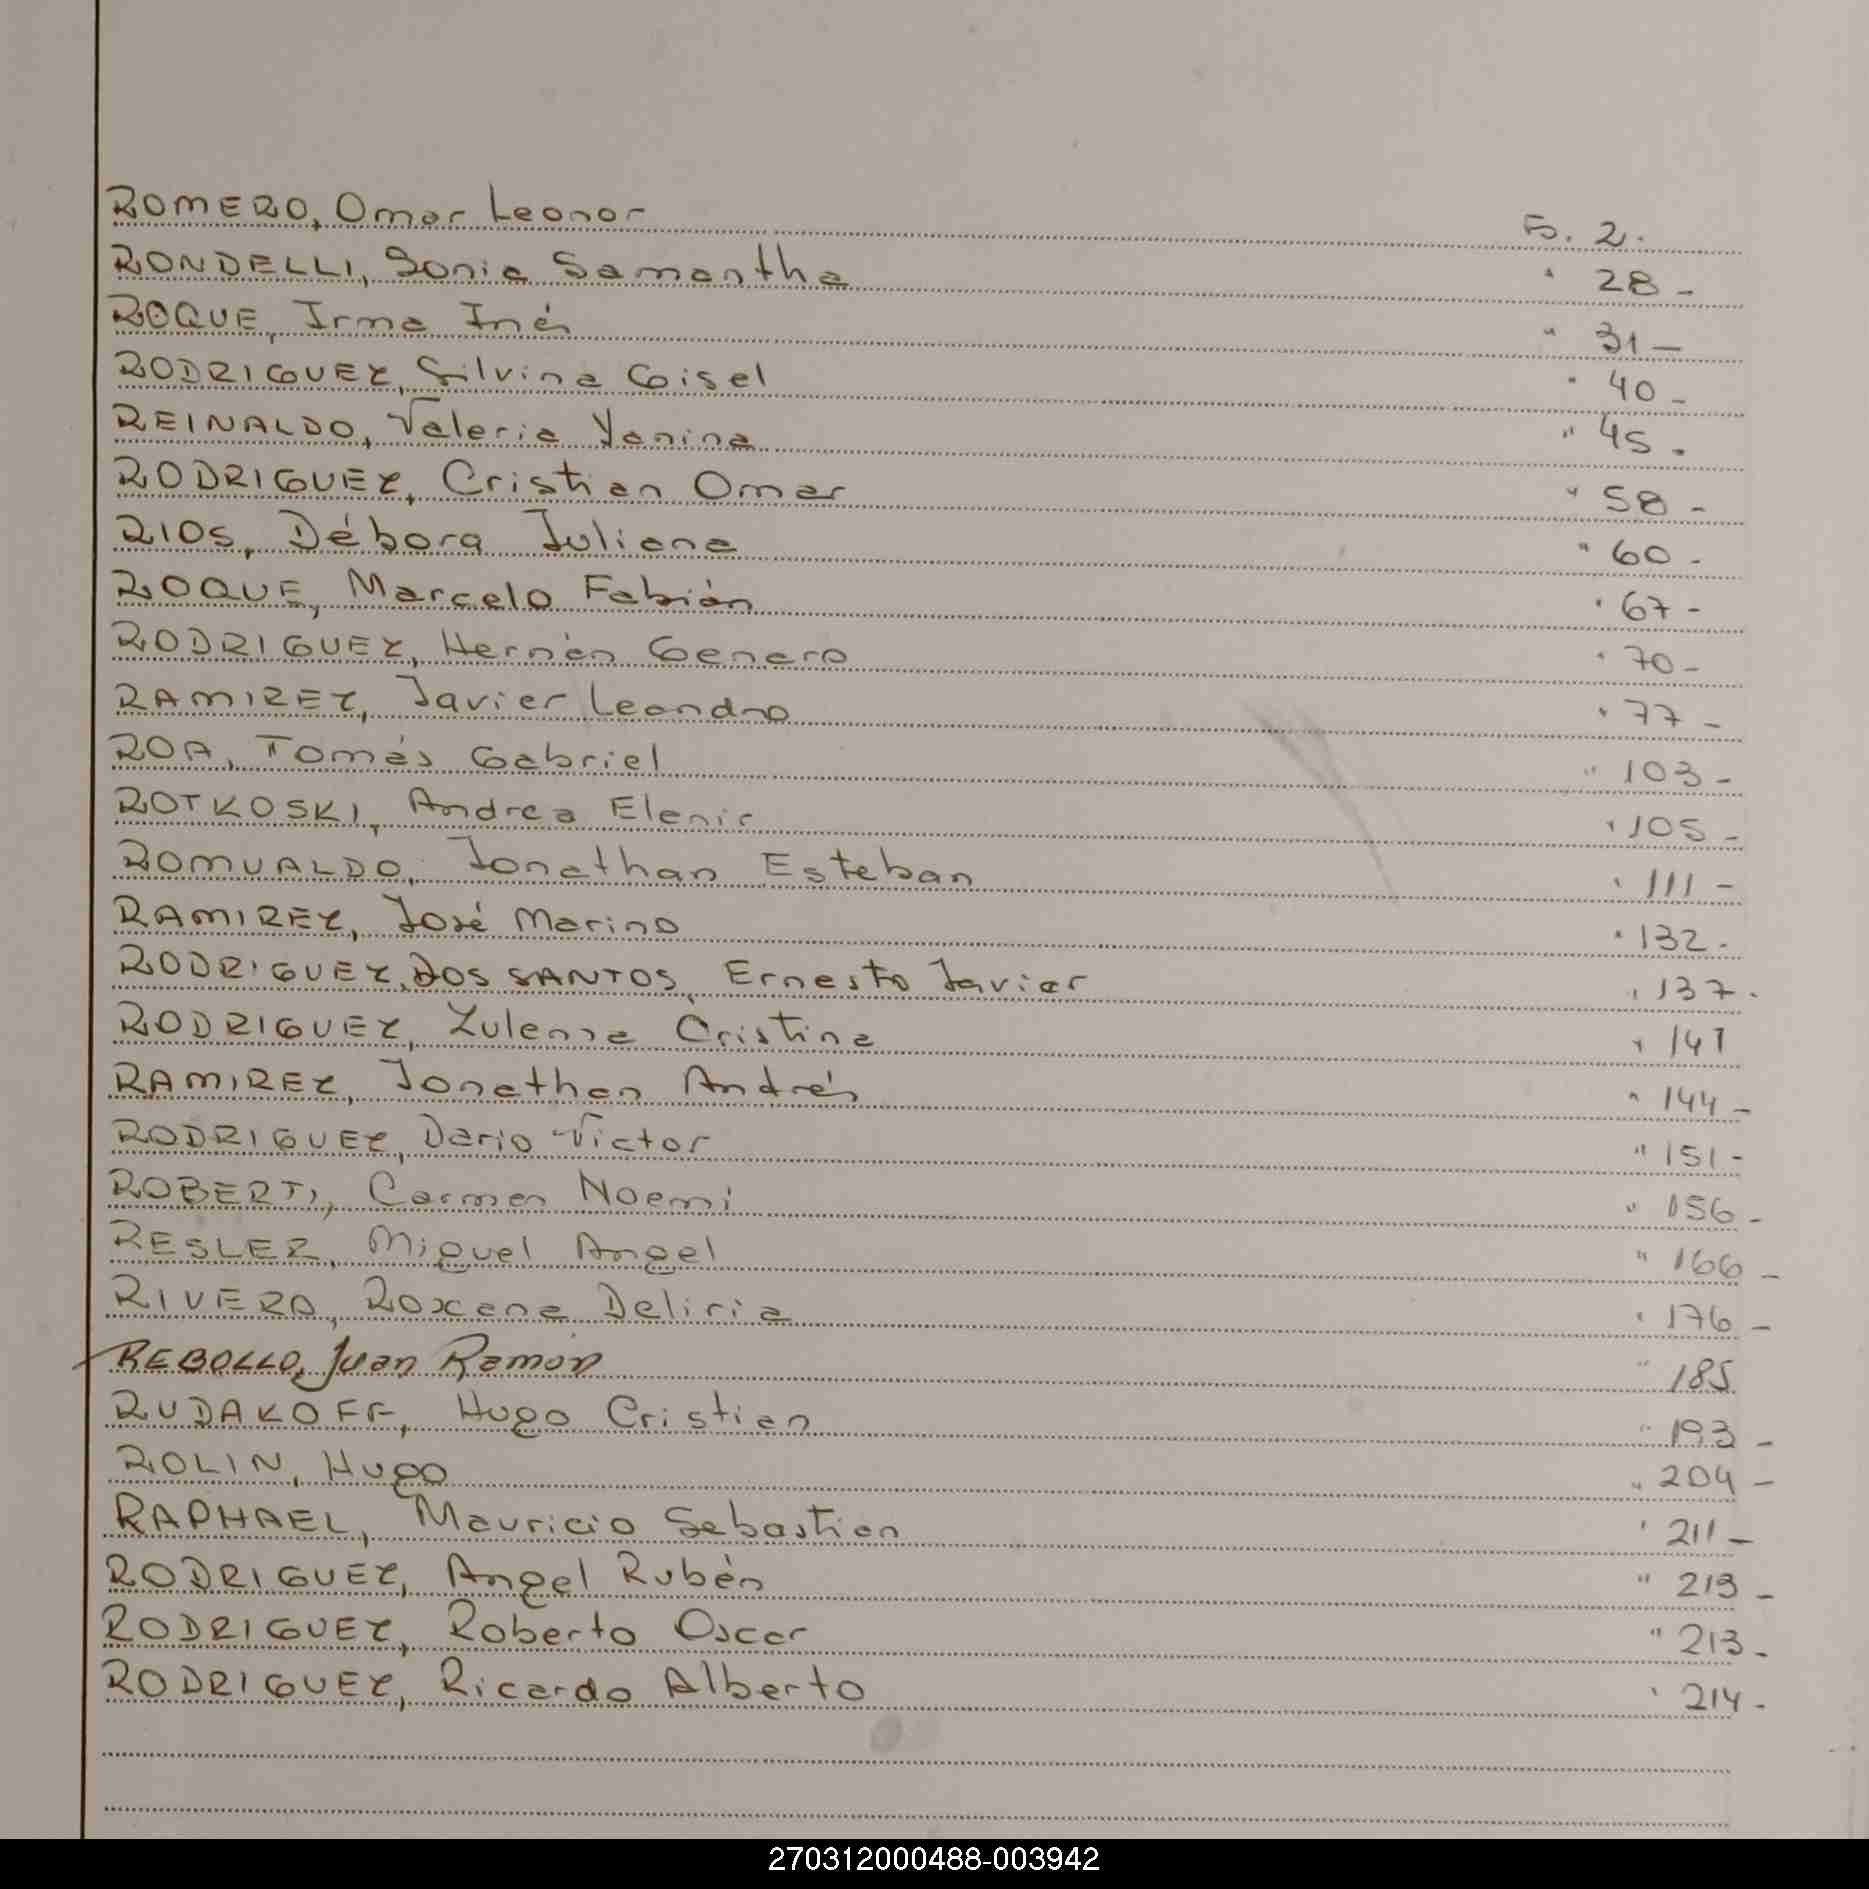 ROMERO, Omar Leonor Fo. 2.
RONDELLI, Sonia Samantha " 28 -
ROQUE, Irma Inés " 31 -
RODRIGUEZ, Silvina Gisel " 40 -
REINALDO, Valeria Yanina " 45 -
RODRIGUEZ, Cristian Omar " 58 -
RIOS, Débora Juliana " 60 -
ROQUE, Marcelo Fabián " 67 -
RODRIGUEZ, Hernán Genaro " 70 -
RAMIREZ, Javier Leandro " 77 -
ROA, Tomás Gabriel " 103 -
ROTKOSKI, Andrea Elenir " 105 -
ROMUALDO, Jonathan Esteban " 111 -
RAMIREZ, José Marino " 132 -
RODRIGUEZ, DOS SANTOS, Ernesto Javier " 137 -
RODRIGUEZ, Cristina " 141
RAMIREZ, Jonathan Andrés " 144 -
RODRIGUEZ, Dario Victor " 151 -
ROBERTI, Carmen Noemi " 156 -
RESLER, Miguel Angel " 166 -
RIVERO, Roxana Deliria " 176 -
REBOLLO, Juan Ramón " 185
RUDAKOFF, Hugo Cristian " 193 -
ROLIN, Hugo " 204 -
RAPHAEL, Mauricio Sebastian " 211 -
RODRIGUEZ, Angel Rubén " 213 -
RODRIGUEZ, Roberto Oscar " 213 -
RODRIGUEZ, Ricardo Alberto " 214 -
270312000488-003942